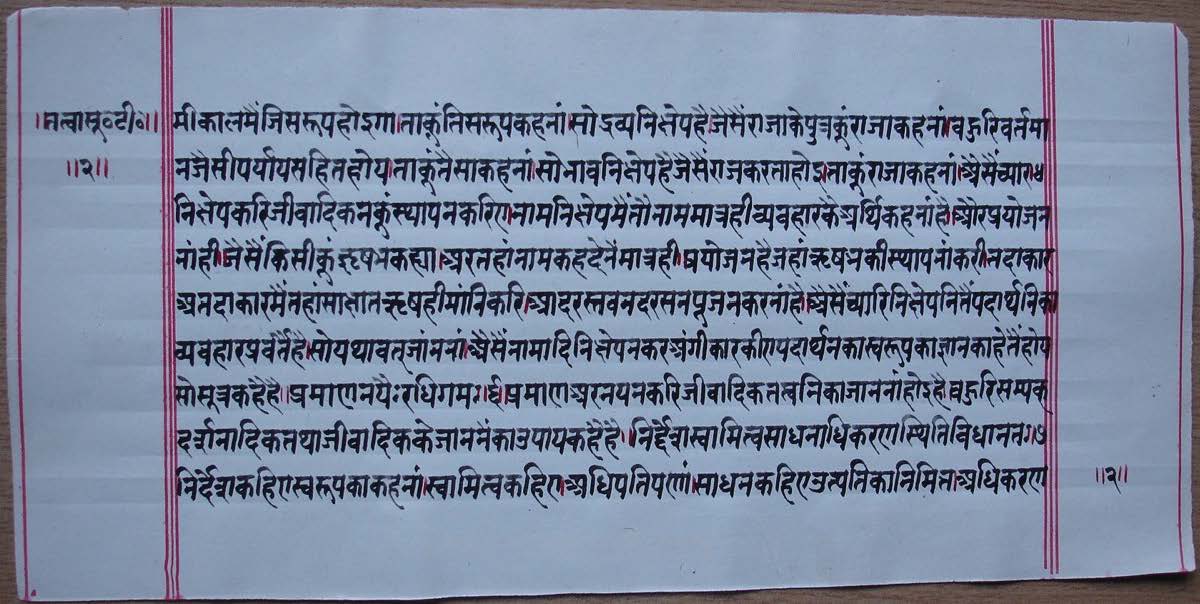 ।तत्वासू०टी०।।
।।२।।
मीकालमैंजिसरूपहोइगा।ताकूंतिसरूपकहनां।सोद्रव्यनिक्षेपहै।जैसैंराजाकेपुत्रकूंराजाकहनां।बहुरिवर्तमा
नजैसीपर्यायसहितहोय।ताकूंतैसाकहनां।सोभावनिक्षेपहैजैसैंराजकरताहोइ।ताकूंराजाकहनां।अैसैंच्यारि४
निक्षेपकरिजीवादिकनकूंस्थापनकरिए।नामनिक्षेपमैंतौनाममात्रहीव्यवहारकैअर्थिकहनांहै।औरप्रयोजन
नांही।जैसैंकिसीकूंऋषभकह्या।अरतहांनामकहदेनैंमात्रही।प्रयोजनहैजहांऋषभकीस्थापनांकरी।तदाकार
अतदाकारमैंतहांसाक्षातऋषहीमांनिकरि।आदरस्तवनदरसनपूजनकरनांहै।अैसैंच्यारिनिक्षेपनितैंपदार्थनिका
व्यवहारप्रवर्तैहै।सोयथावतजांननां।अैसैंनामादिनिक्षेपनकरअंगीकारकीएपदार्थनकास्वरूपकाज्ञानकाहेतैंहोय
सोसूत्रकहैहै।।प्रमाणनयैरधिगमः।६।प्रमाणअरनयनकरिजीवादिकतत्वनिकाजाननांहोइहै।बहुरिसम्यक
दर्शनादिकतथाजीवादिककेजाननैंकाउपायकहैहै।।निर्द्देशस्वामित्वसाधनाधिकरणस्थितिविधानतः।७
निर्देशकहिएस्वरूपकाकहनां।स्वामित्वकहिए।अधिपतिपणां।साधनकहिएउत्पतिकानिमित्त।अधिकरण
।।२।।